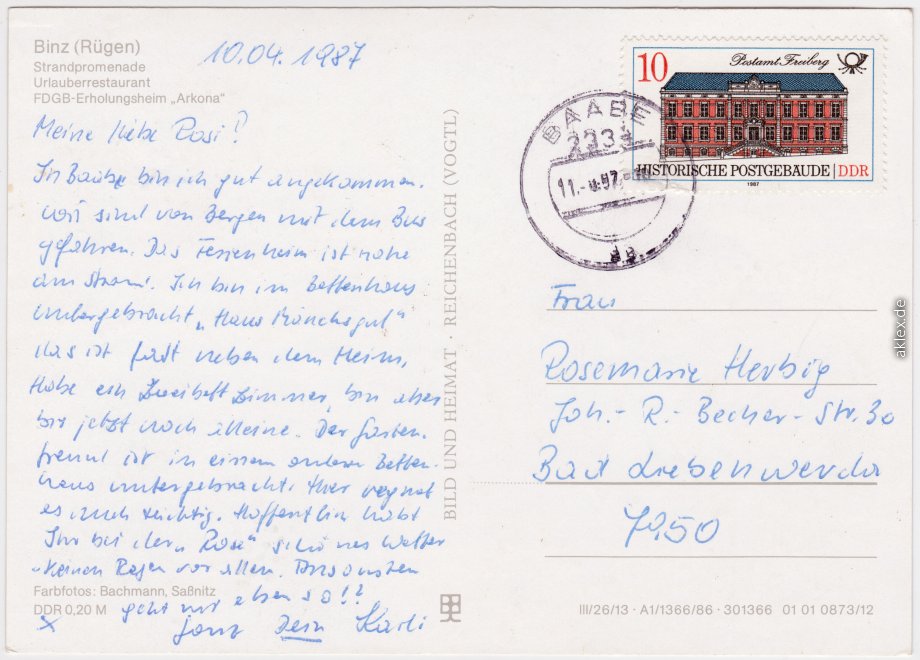 Binz (Rügen)
Strandpromenade
Urlauberrestaurant
FDGB-Erholungsheim „Arkona“
10.04.1987
Meine liebe Rosi!
In Baabe bin ich gut angekommen.
sind von Bergen mit dem Bus
gefahren. Das Ferienheim ist nahe
am Strand. Ich bin im Bettenhaus
untergebracht „Haus Mönchsgut“
das ist fast neben dem Heim.
Habe ein Zweibettzimmer, bin aber
bis jetzt noch alleine. Der Garten-
freund ist in einem anderen Betten-
haus untergebracht. Hier regnet
es auch tüchtig. Hoffentlich habt
Ihr bei der „Rose“ schönes Wetter
keinen Regen vor allem. Ansonsten
geht mir eben so!!
ganz Dein Karli
Farbfotos: Bachmann, Saßnitz
DDR 0,20 M
BILD UND HEIMAT · REICHENBACH (VOGTL)
10
Postamt Freiberg
HISTORISCHE POSTGEBÄUDE | DDR
1987
BAABE
2233
11.-4.87
Frau
Rosemarie Herbig
Joh.-R.-Becher-Str. 30
Bad Liebenwerda
7950
III/26/13 · A1/1366/86 · 301366 01 01 0873/12
aklex.de